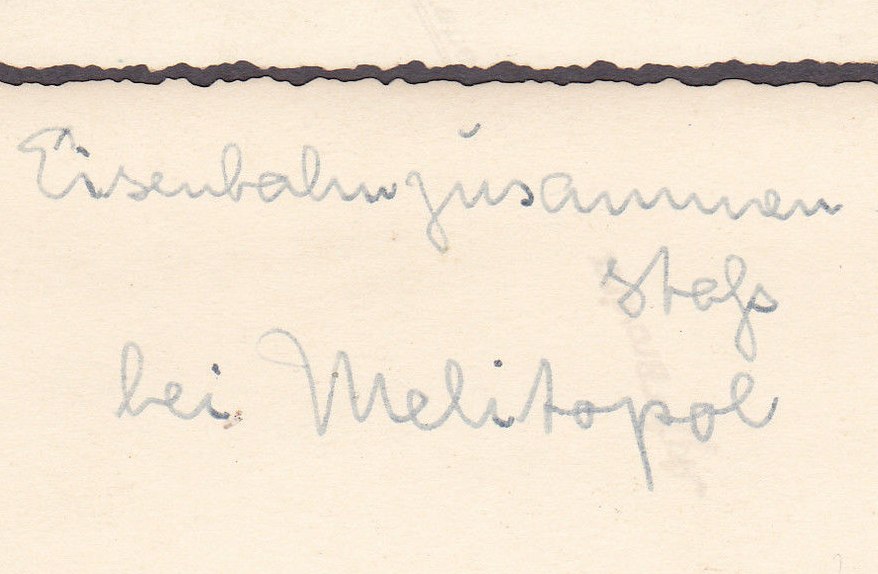 Eisenbahnzusammen
stoß
bei Melitopol